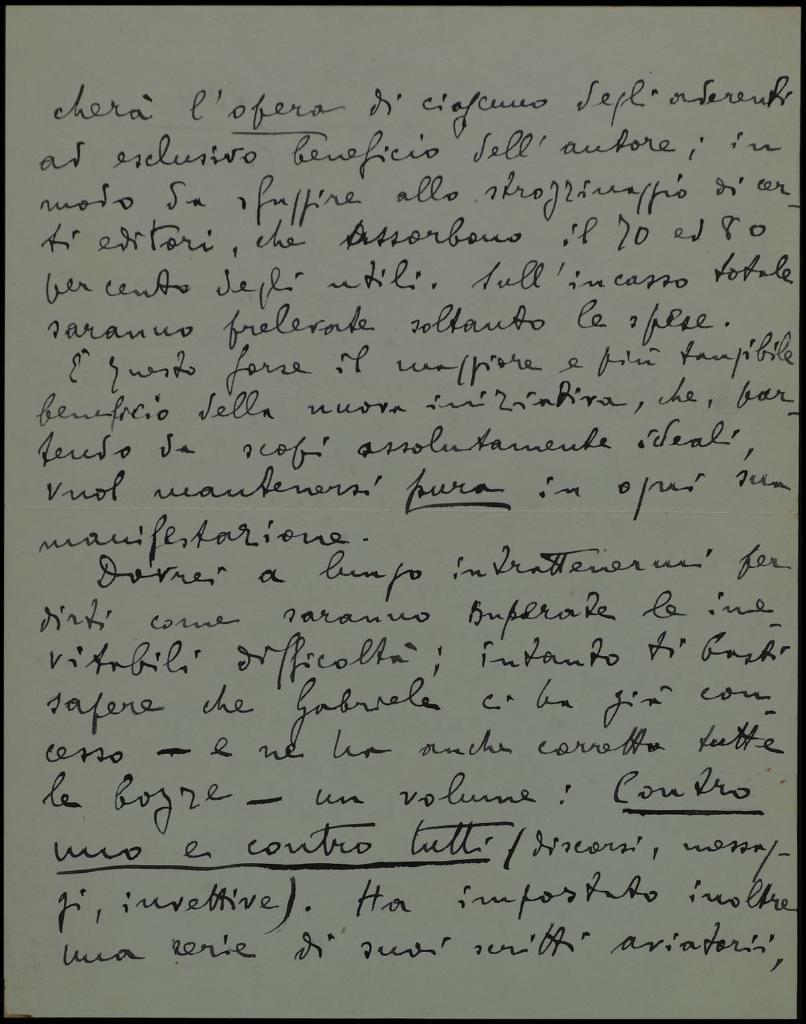 cherà l'opera di ciascuno degli aderenti
ad esclusivo beneficio dell'autore; in
modo da sfuggire allo strozzinaggio di cer-
ti editori, che assorbono il 70 ed 80
per cento degli utili. Sull'incasso totale
saranno prelevate soltanto le spese.
È questo forse il maggiore e più tangibile
beneficio della nuova iniziativa, che, par-
tendo da scopi assolutamente ideali,
vuol mantenersi pura in ogni sua
manifestazione.
Dovrei a lungo intrattenermi per
dirti come saranno superate le ine-
vitabili difficoltà; intanto ti basti
sapere che Gabriele ci ha già con-
cesso — e ne ha anche corrette tutte
le bozze — un volume: Contro
uno e contro tutti (discorsi, messag-
gi, invettive). Ha impostato inoltre
una serie di suoi scritti aviatorii,